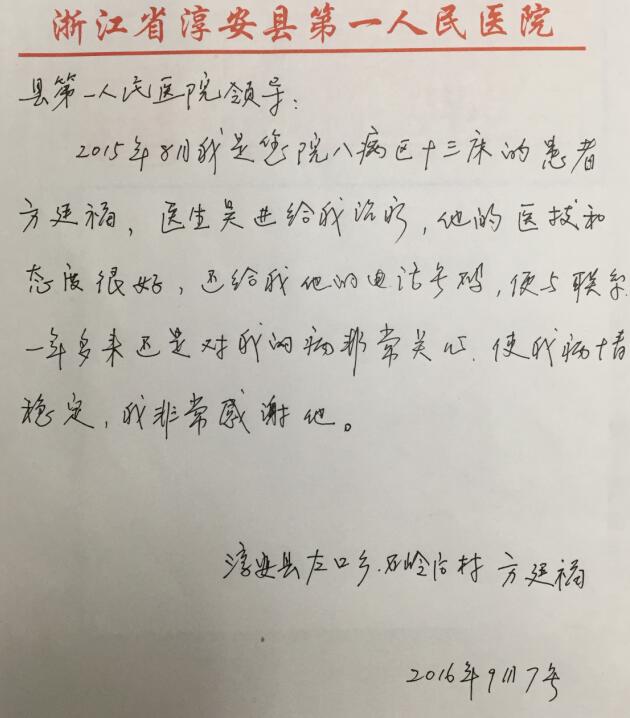 浙江省淳安县第一人民医院
县第一人民医院领导：
2015年8月我是您院八病区十三床的患者
方廷福，医生吴进给我治疗，他的医技和
态度很好，还给我他的电话号码，便与联系.
一年多来还是对我的病非常关心.使我病情
稳定，我非常感谢他。
淳安县左口乡.石岭后村 方廷福
2016年9月7号